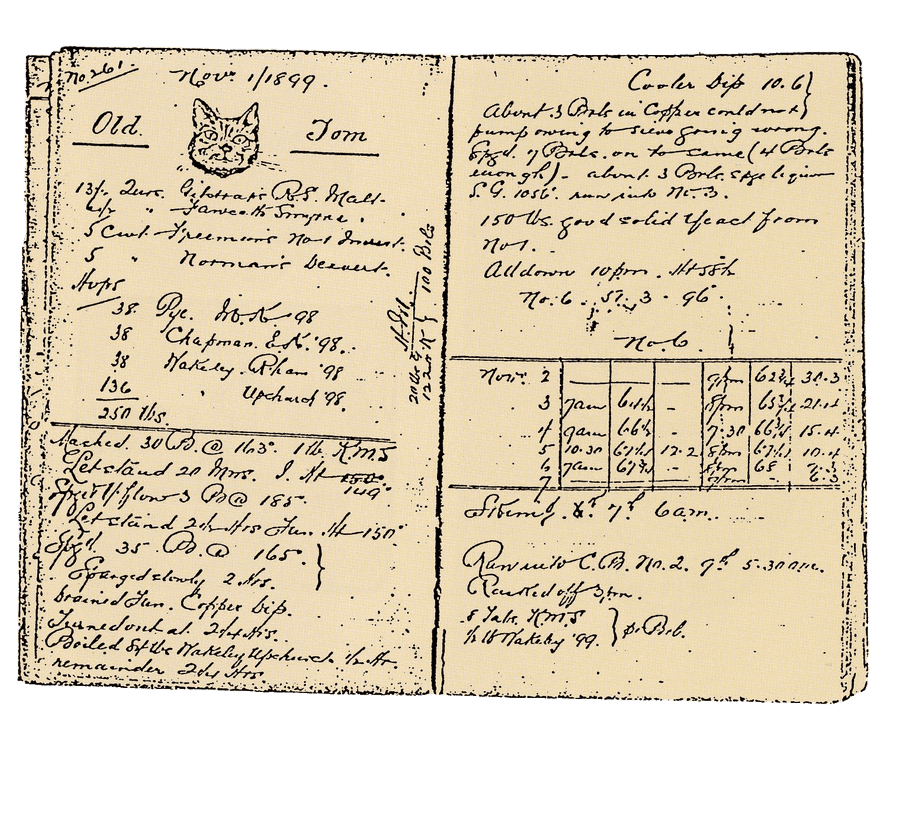 No. 261.
Novr 1/1899.
Old. Tom
13½ Qurs. Gilstrap's R.S. Malt.
" Fawcett Smyrna.
5 Cwt. No 1 Invert.
5 " Norman's
Hops
38. Pye. M.K. 98
38 Chapman. E.K. '98.
38 Wakeley. Rham '98
136 " Upchurch '98.
250 lbs.
100 Bols
Mashed. 30 B. @ 163° 1 lb KMS
Let stand 20 Mns. I. Ht 150°
149°
3 B @ 185°
Let stand 2½ Hrs Tun. Ht 150°
Spg'd. 35 B. @ 165°
Sparged slowly 2 Hrs.
Drained Tun. Copper Dip.
Turned out at 2¼ Hrs.
Boiled the Wakeley Upchurch ½ Hr.
remainder 2¼ Hrs
Cooler Dip 10.6
About 3 Brls in Copper could not
pump owing to sieve going wrong.
Spg'd. 7 Brls. on to same (4 Brls
enough) - about 3 Brls. spge liquor
S.G. 1056° run into No. 3.
150 lbs. good solid Yeast from
No 1.
All down 10pm. Ht 58½
No. 6. 57. 3. 96.
No 6
Novr. 2 — — 9pm 62¾ 30.3
3 7am 64½ - 8pm 65¾ 21.4
4 9am 66½ - 7.30 66¾ 15.4
5 10.30 67½ 12.2 8pm 67½ 10.4
6 7am 67¾ - 68 7.3
7 — — - 6.3
7th 6am.
Ran into C.B. No. 2. 9th 5.30am.
Racked off 3pm.
8 Tabs. KMS
½ lb Wakeley '99. } pr Brl.